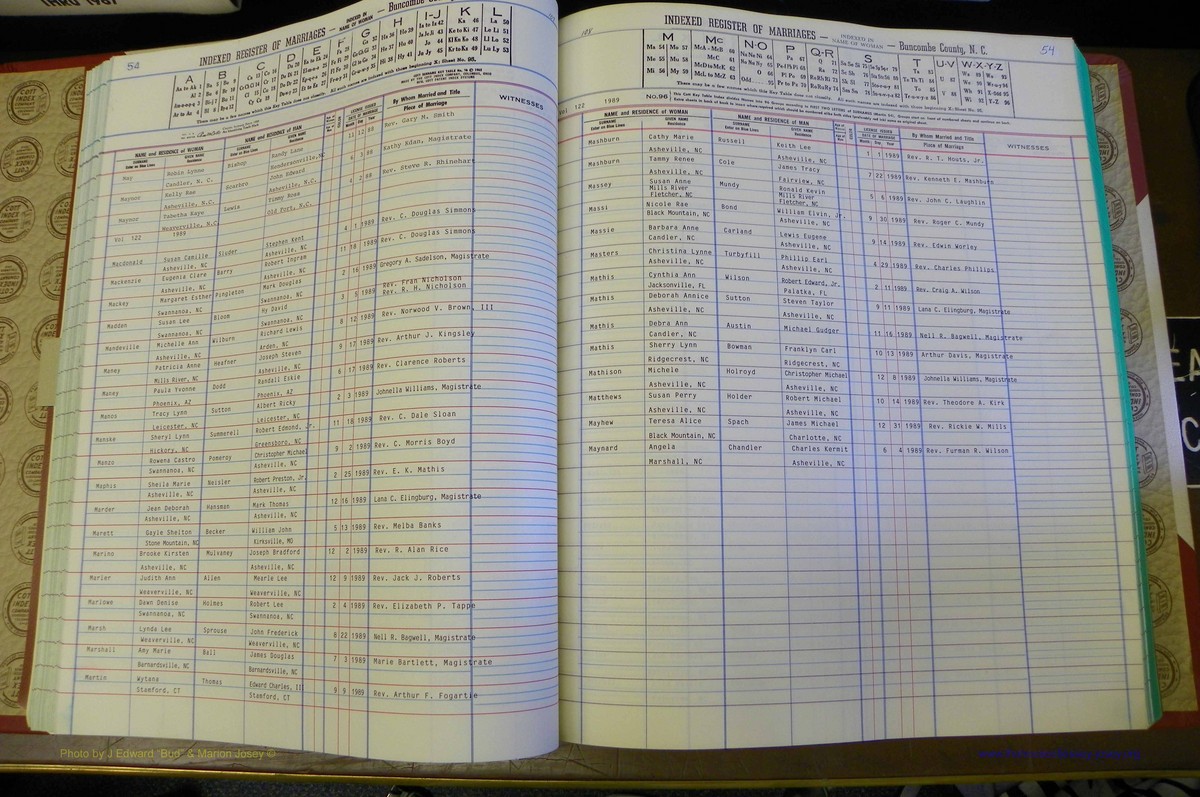 THRU 1987
54
INDEXED REGISTER OF MARRIAGES — INDEXED IN NAME OF WOMAN
A B C D E F G H I-J K L
By Whom Married and Title
Place of Marriage
WITNESSES
NAME and RESIDENCE OF WOMAN
NAME and RESIDENCE OF MAN
May Robin Lynne Bishop Randy Lane 11 12 88 Rev. Gary M. Smith
Candler, N. C. Hendersonville, NC
Maynor Kelly Rae Scarbro John Edward 6 3 88 Kathy Adan, Magistrate
Asheville, N.C. Asheville, N.C.
Maynor Tabetha Kaye Lewis Timmy Rose 4 2 88 Rev. Steve R. Rhinehart
Weaverville, N.C. Old Fort, N.C.
Vol 122 1989
Macdonald Susan Camille Sluder Stephen Kent 4 1 1989 Rev. C. Douglas Simmons
Asheville, NC Asheville, NC
Mackenzie Eugenia Clare Barry Robert Ingram 11 18 1989 Rev. C. Douglas Simmons
Asheville, NC Asheville, NC
Mackey Margaret Esther Pingleton Mark Douglas 2 16 1989 Gregory A. Sadelson, Magistrate
Swannanoa, NC Swannanoa, NC
Madden Susan Lee Bloom Hy David 3 5 1989 Rev. Fran Nicholson
Rev. R. H. Nicholson
Swannanoa, NC Swannanoa, NC
Mandeville Michelle Ann Wilburn Richard Lewis 8 12 1989 Rev. Norwood V. Brown, III
Asheville, NC Arden, NC
Maney Patricia Anne Heafner Joseph Steven 9 17 1989 Rev. Arthur J. Kingsley
Mills River, NC Asheville, NC
Maney Paula Yvonne Dodd Randall Eskie 6 17 1989 Rev. Clarence Roberts
Phoenix, AZ Phoenix, AZ
Manco Tracy Lynn Sutton Albert Ricky 2 3 1989 Johnella Williams, Magistrate
Leicester, NC Leicester, NC
Manske Sheryl Lynn Summerell Robert Edmond, Jr. 11 18 1989 Rev. C. Dale Sloan
Hickory, NC Greensboro, NC
Manzo Rowena Castro Pomeroy Christopher Michael 9 2 1989 Rev. C. Morris Boyd
Swannanoa, NC Asheville, NC
Maphis Sheila Marie Neisler Robert Preston, Jr. 2 25 1989 Rev. E. K. Mathis
Asheville, NC Asheville, NC
Marder Jean Deborah Hansman Mark Thomas 12 16 1989 Lana C. Elingburg, Magistrate
Asheville, NC Asheville, NC
Marett Gayle Shelton Becker William John 5 13 1989 Rev. Melba Banks
Stone Mountain, NC Kirksville, MO
Marino Brooke Kirsten Mulvaney Joseph Bradford 12 2 1989 Rev. R. Alan Rice
Asheville, NC Asheville, NC
Marler Judith Ann Allen Mearle Lee 12 9 1989 Rev. Jack J. Roberts
Weaverville, NC Weaverville, NC
Marlowe Dawn Denise Holmes Robert Lee 2 4 1989 Rev. Elizabeth P. Tappe
Swannanoa, NC Swannanoa, NC
Marsh Lynda Lee Sprouse John Frederick 8 22 1989 Nell R. Bagwell, Magistrate
Weaverville, NC Weaverville, NC
Marshall Amy Marie Ball James Douglas 7 3 1989 Marie Bartlett, Magistrate
Barnardsville, NC Barnardsville, NC
Martin Wytana Thomas Edward Charles, III 9 9 1989 Rev. Arthur F. Fogartie
Stamford, CT Stamford, CT
54
INDEXED REGISTER OF MARRIAGES — INDEXED IN NAME OF WOMAN — Buncombe County, N. C.
M Mc N-O P Q-R S T U-V W-X-Y-Z
Vol 122 1989 No.96
NAME and RESIDENCE OF WOMAN
NAME and RESIDENCE OF MAN
By Whom Married and Title
Place of Marriage
WITNESSES
Mashburn Cathy Marie Russell Keith Lee 1 1 1989 Rev. R. T. Houts, Jr.
Asheville, NC Asheville, NC
Mashburn Tammy Renee Cole James Tracy 7 22 1989 Rev. Kenneth E. Mashburn
Asheville, NC Fairview, NC
Massey Susan Anne Mundy Ronald Kevin 5 6 1989 Rev. John C. Laughlin
Mills River Mills River
Fletcher, NC Fletcher, NC
Massi Nicole Rae Bond William Elvin, Jr. 9 30 1989 Rev. Roger C. Mundy
Black Mountain, NC Asheville, NC
Massie Barbara Anne Carland Lewis Eugene 9 14 1989 Rev. Edwin Worley
Candler, NC Asheville, NC
Masters Christina Lynne Turbyfill Phillip Earl 4 29 1989 Rev. Charles Phillips
Asheville, NC Asheville, NC
Mathis Cynthia Ann Wilson Robert Edward, Jr. 2 11 1989 Rev. Craig A. Wilson
Jacksonville, FL Palatka, FL
Mathis Deborah Annice Sutton Steven Taylor 9 11 1989 Lana C. Elingburg, Magistrate
Asheville, NC Asheville, NC
Mathis Debra Ann Austin Michael Gudger 11 16 1989 Nell R. Bagwell, Magistrate
Candler, NC
Mathis Sherry Lynn Bowman Franklyn Carl 10 13 1989 Arthur Davis, Magistrate
Ridgecrest, NC Ridgecrest, NC
Mathison Michele Holroyd Christopher Michael 12 8 1989 Johnella Williams, Magistrate
Asheville, NC Asheville, NC
Matthews Susan Perry Holder Robert Michael 10 14 1989 Rev. Theodore A. Kirk
Asheville, NC Asheville, NC
Mayhew Teresa Alice Spach James Michael 12 31 1989 Rev. Rickie W. Mills
Black Mountain, NC Charlotte, NC
Maynard Angela Chandler Charles Kermit 6 4 1989 Rev. Furman R. Wilson
Marshall, NC Asheville, NC
Photo by J Edward "Bud" & Marion Josey ©